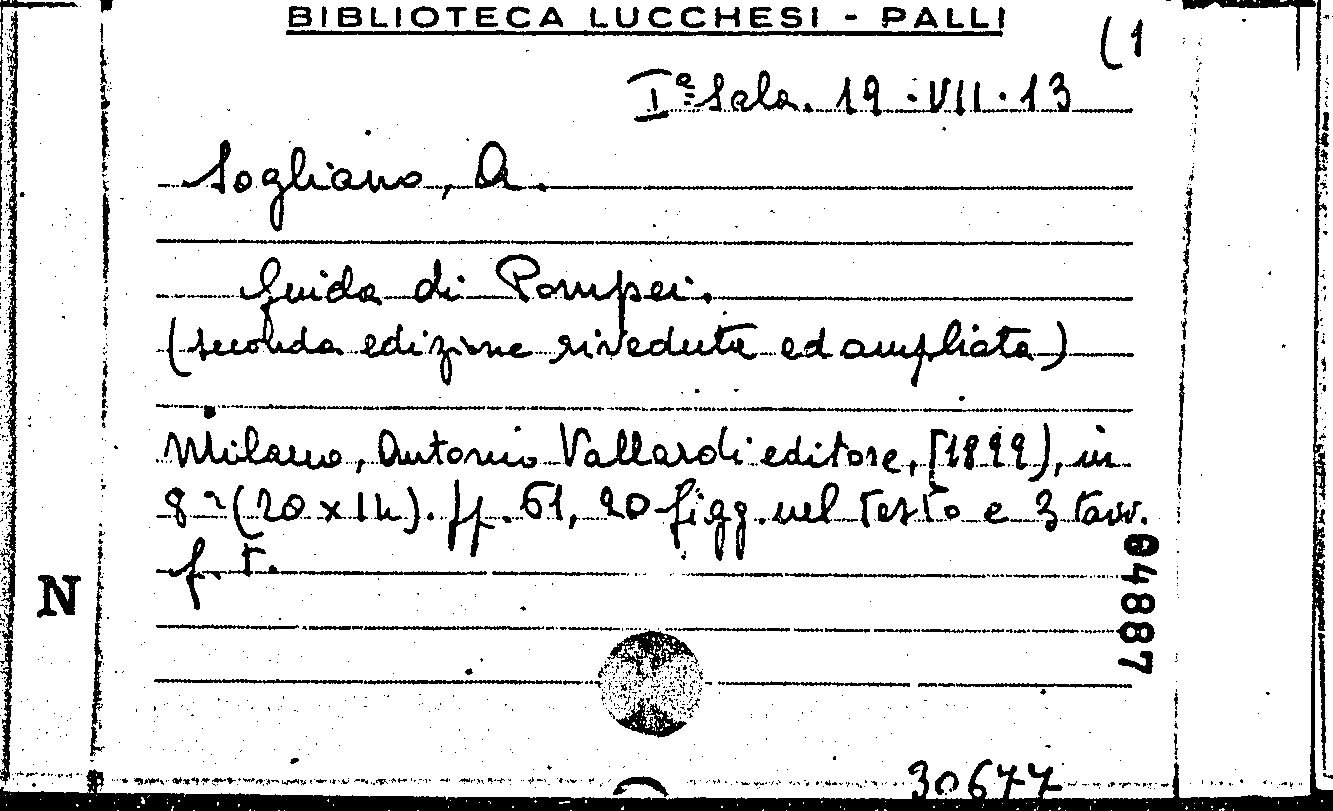 BIBLIOTECA LUCCHESI - PALLI
(1
Iª Sala. 19.VII.13
Sogliano, A.
Guida di Pompei.
(seconda edizione riveduta ed ampliata)
Milano, Antonio Vallardi editore, [1899], in
8° (20 x 14). pp. 61, 20 figg. nel testo e 3 tavv.
f. t.
N
04887
30677